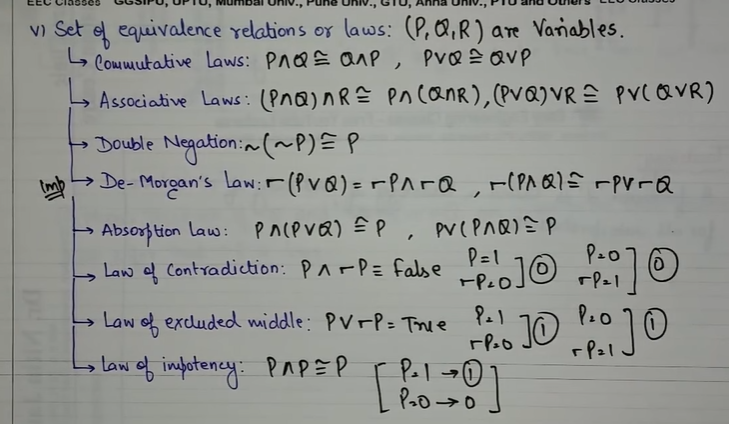 EEC Classes GGSIPU, UPTU, Mumbai Univ., Pune Univ., GTU, Anna Univ., PTU and Others EEC Classes
v) Set of equivalence relations or laws: (P,Q,R) are Variables.
↳ Commutative Laws: P∧Q ≅ Q∧P , P∨Q ≅ Q∨P
↳ Associative Laws: (P∩Q)∩R ≅ P∩(Q∩R), (P∨Q)∨R ≅ P∨(Q∨R)
→ Double Negation: ~(~P) ≅ P
Imp → De-Morgan's Law: ¬(P∨Q) = ¬P∧¬Q , ¬(P∧Q) ≅ ¬P∨¬Q
→ Absorption Law: P∧(P∨Q) ≅ P , P∨(P∧Q) ≅ P
→ Law of Contradiction: P∧¬P ≡ False P=1 ¬P=0 ] 0 P=0 ¬P=1 ] 0
→ Law of excluded middle: P∨¬P = True P=1 ¬P=0 ] 1 P=0 ¬P=1 ] 1
↳ Law of impotency: P∧P ≅ P [ P=1 → 1
P=0 → 0 ]